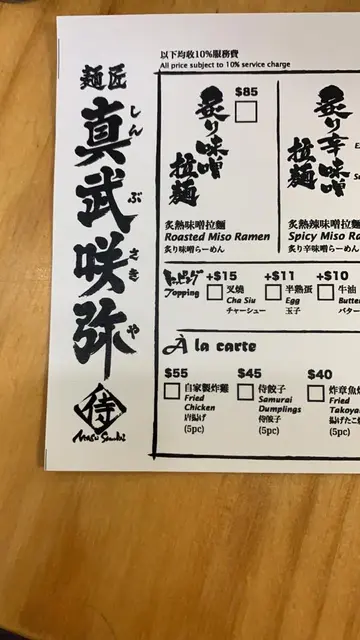 麺匠
真武咲弥
しん
ぶ
さき
や
侍
以下均收10%服務費
All price subject to 10% service charge
$85
炙り味噌
拉麺
炙熱味噌拉麵
Roasted Miso Ramen
炙り味噌らーめん
炙り辛味噌
拉麺
炙熱辣味噌拉麵
Spicy Miso Ra
炙り辛味噌らーめん
トッピング
Topping
+$15
叉燒
Cha Siu
チャーシュー
+$11
半熟蛋
Egg
玉子
+$10
牛油
Butte
バター
À la carte
$55
自家製炸雞
Fried
Chicken
唐揚げ
(5pc)
$45
侍餃子
Samurai
Dumplings
侍餃子
(5pc)
$40
炸章魚燒
Fried
Takoya
揚げたこ焼
(5pc)